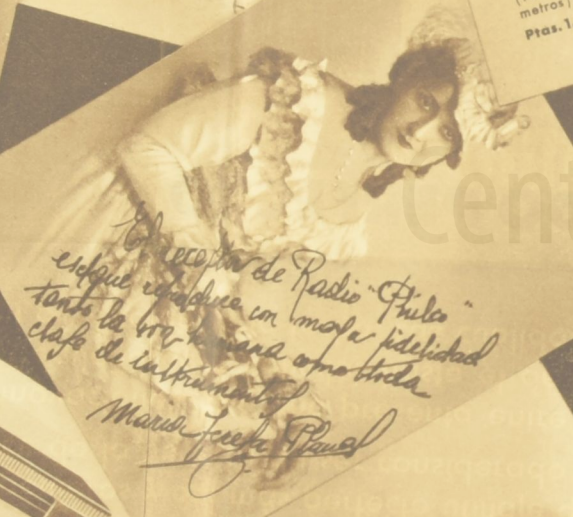 metros)
Ptas. 1
Cent
El receptor de Radio "Philco"
es el que reproduce con mayor fidelidad
tanto la voz humana como toda
clase de instrumentos
Maria Teresa Planas